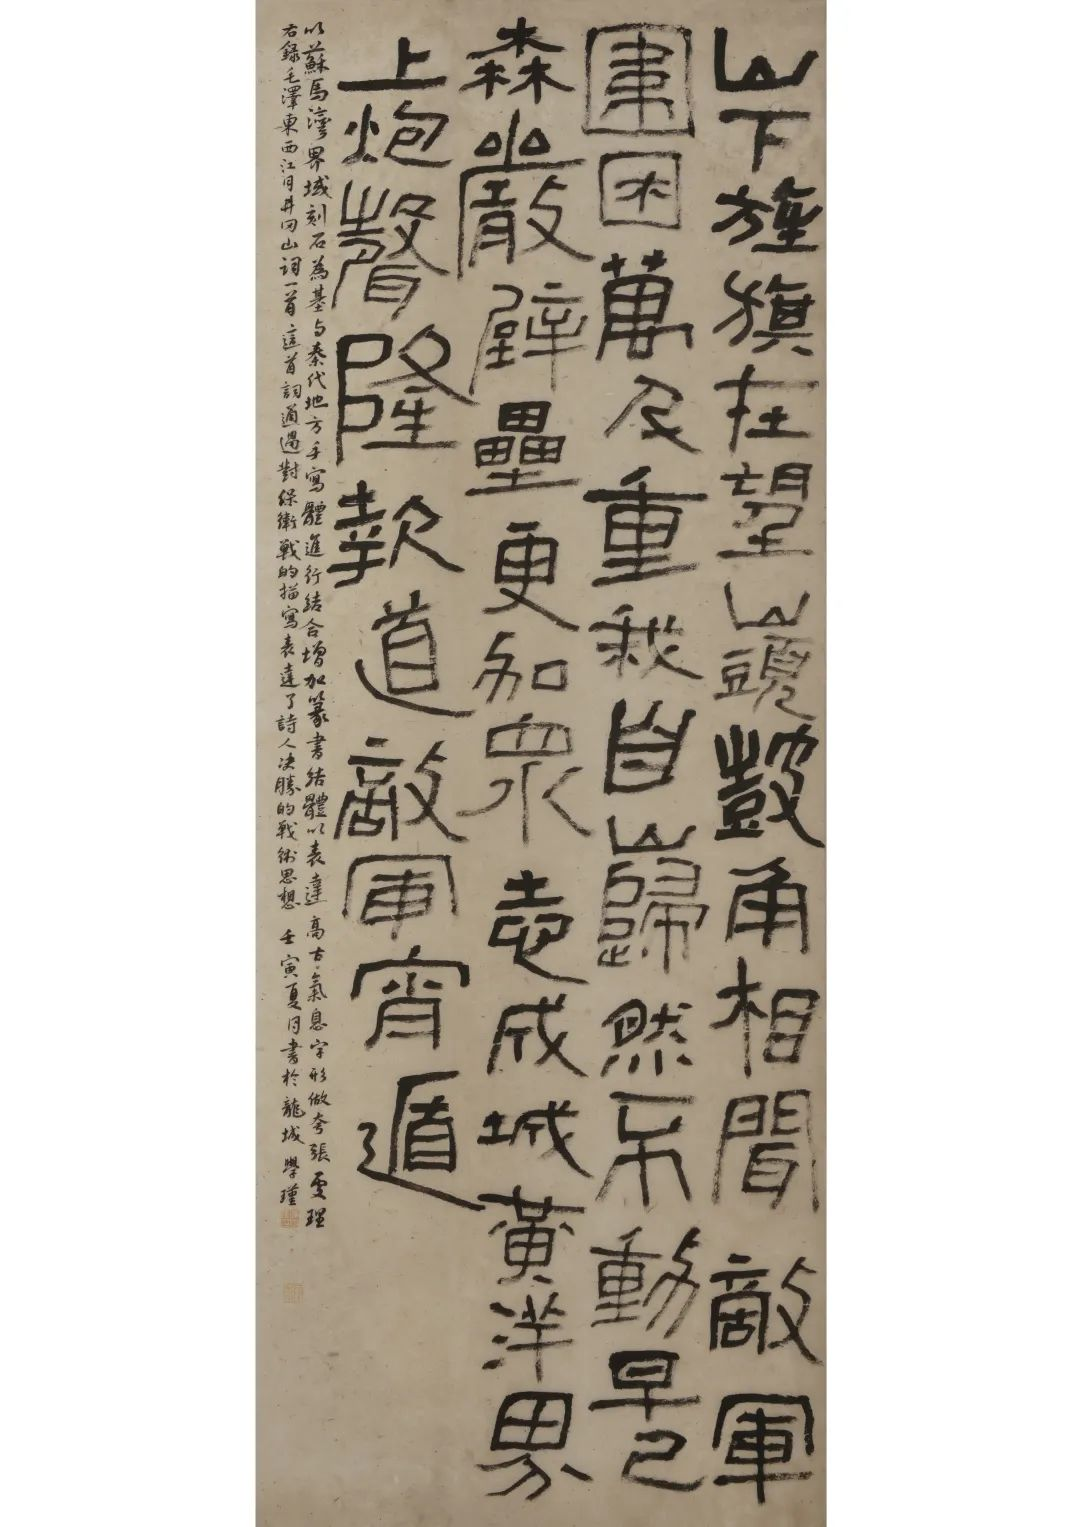 山下旌旗在望山頭鼓角相聞敵軍
圍困萬及重我自巋然不動早已
森巖壁壘更加衆志成城黃洋界
上炮聲隆報道敵軍宵遁
以蘇馬灣界域刻石為基与秦代地方手寫體進行結合增加篆書結體以表達高古氣息字形做夸張處理
右錄毛澤東西江月井冈山詞一首這首詞通過對保衛戰的描寫表達了詩人決勝的戰術思想 壬寅夏月書於龍城 學瑾